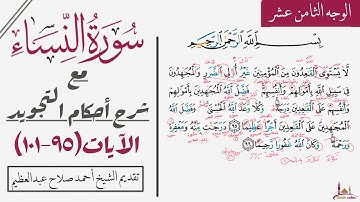 الوجه الثامن عشر
سورة النساء
مع
شرح أحكام التجويد
الآيات (٩٥-١٠١)
تقديم الشيخ أحمد صلاح عبدالعظيم
بِسْمِ اللَّهِ الرَّحْمَٰنِ الرَّحِيمِ
لَّا يَسْتَوِي الْقَاعِدُونَ مِنَ الْمُؤْمِنِينَ غَيْرُ أُولِي الضَّرَرِ وَالْمُجَاهِدُونَ
فِي سَبِيلِ اللَّهِ بِأَمْوَالِهِمْ وَأَنفُسِهِمْ فَضَّلَ اللَّهُ الْمُجَاهِدِينَ بِأَمْوَالِهِمْ
وَأَنفُسِهِمْ عَلَى الْقَاعِدِينَ دَرَجَةً وَكُلًّا وَعَدَ اللَّهُ الْحُسْنَىٰ وَفَضَّلَ اللَّهُ
الْمُجَاهِدِينَ عَلَى الْقَاعِدِينَ أَجْرًا عَظِيمًا ٩٥ دَرَجَاتٍ مِّنْهُ وَمَغْفِرَةً
وَرَحْمَةً وَكَانَ اللَّهُ غَفُورًا رَّحِيمًا ٩٦